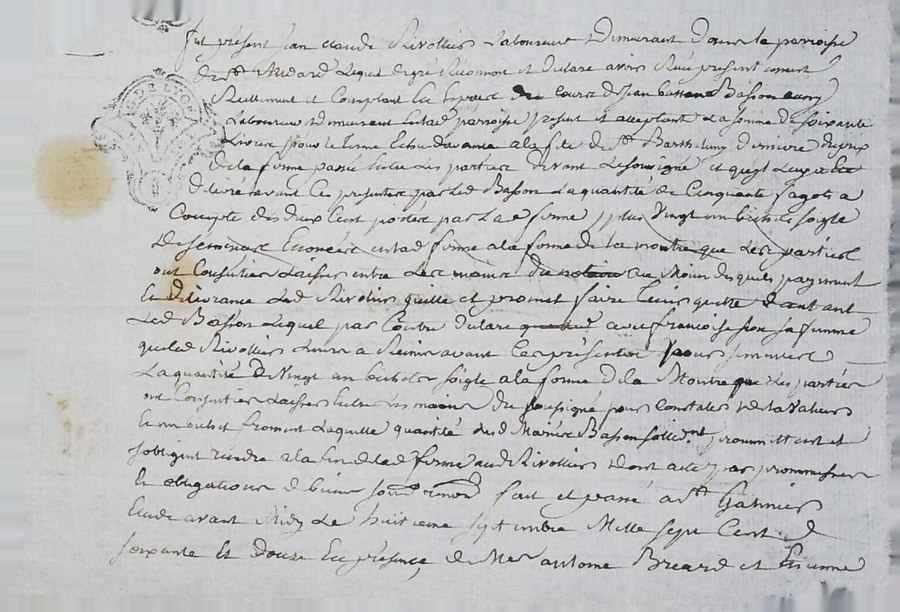 fut présent Jean Claude Rivollier Laboureur Demeurant Dans la parroisse
De St Medard Lequel de gré Reconnoit et Declare avoir Reçu présentement
Reellement et Comptant En Especes de Cours de Jean Basson
Laboureur Demeurant en lad parroisse present et acceptant La somme de soixante
Livres pour le terme Echu davance a la fete de St Barthelemy Derniere du prix
De la ferme passée Entre Les parties devant Le soussigné et quil Luy a Eté
Delivré avant Ces presentes par Led Basson La quantité de Cinquante fagots a
Compte des deux Cent portés par Lad ferme plus Vingt un bichets soigle
De semence Enoncés en lad ferme a la forme de la montre que Les parties
ont Consenties Laisser entre Les mains du notaire au Moien desquels payement
Et delivrance Led Rivolier quitte et promet faire tenir quitte
Led Basson Lequel par Contre declare avec françoise sa femme
que led Rivollier Leur a Remis avant Ces présentes pour semence
La quantité De Vingt un bichets soigle a la forme De la Montre que Les parties
ont Consenties Laisser Entre Les mains du soussigné pour Constater De la Valeur
Et un bichet froment Laquelle quantité Led Mariés Basson promettent et
sobligent rendre a la fin de lad ferme aud Rivollier Dont acte par prommesses
Et obligations de biens fait et passé a St Galmier
Etude avant Midy Le huitieme septembre Mille sept Cent
soixante Et Douze En présence de Mes antoine Breard et Etienne